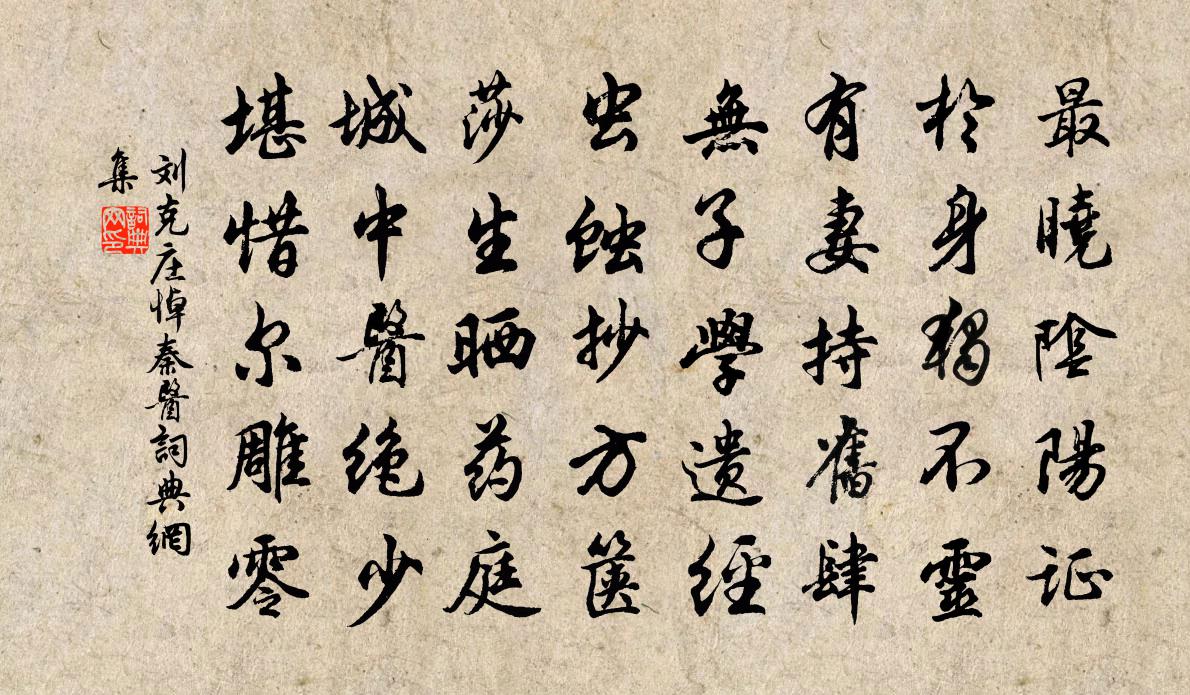 最曉陰陽证
於身獨不靈
有妻持舊肆
無子學遺經
虫蝕抄方箧
莎生晒药庭
城中醫绝少
堪惜尔雕零
刘克庄悼秦醫詞典網
集
詞典網印